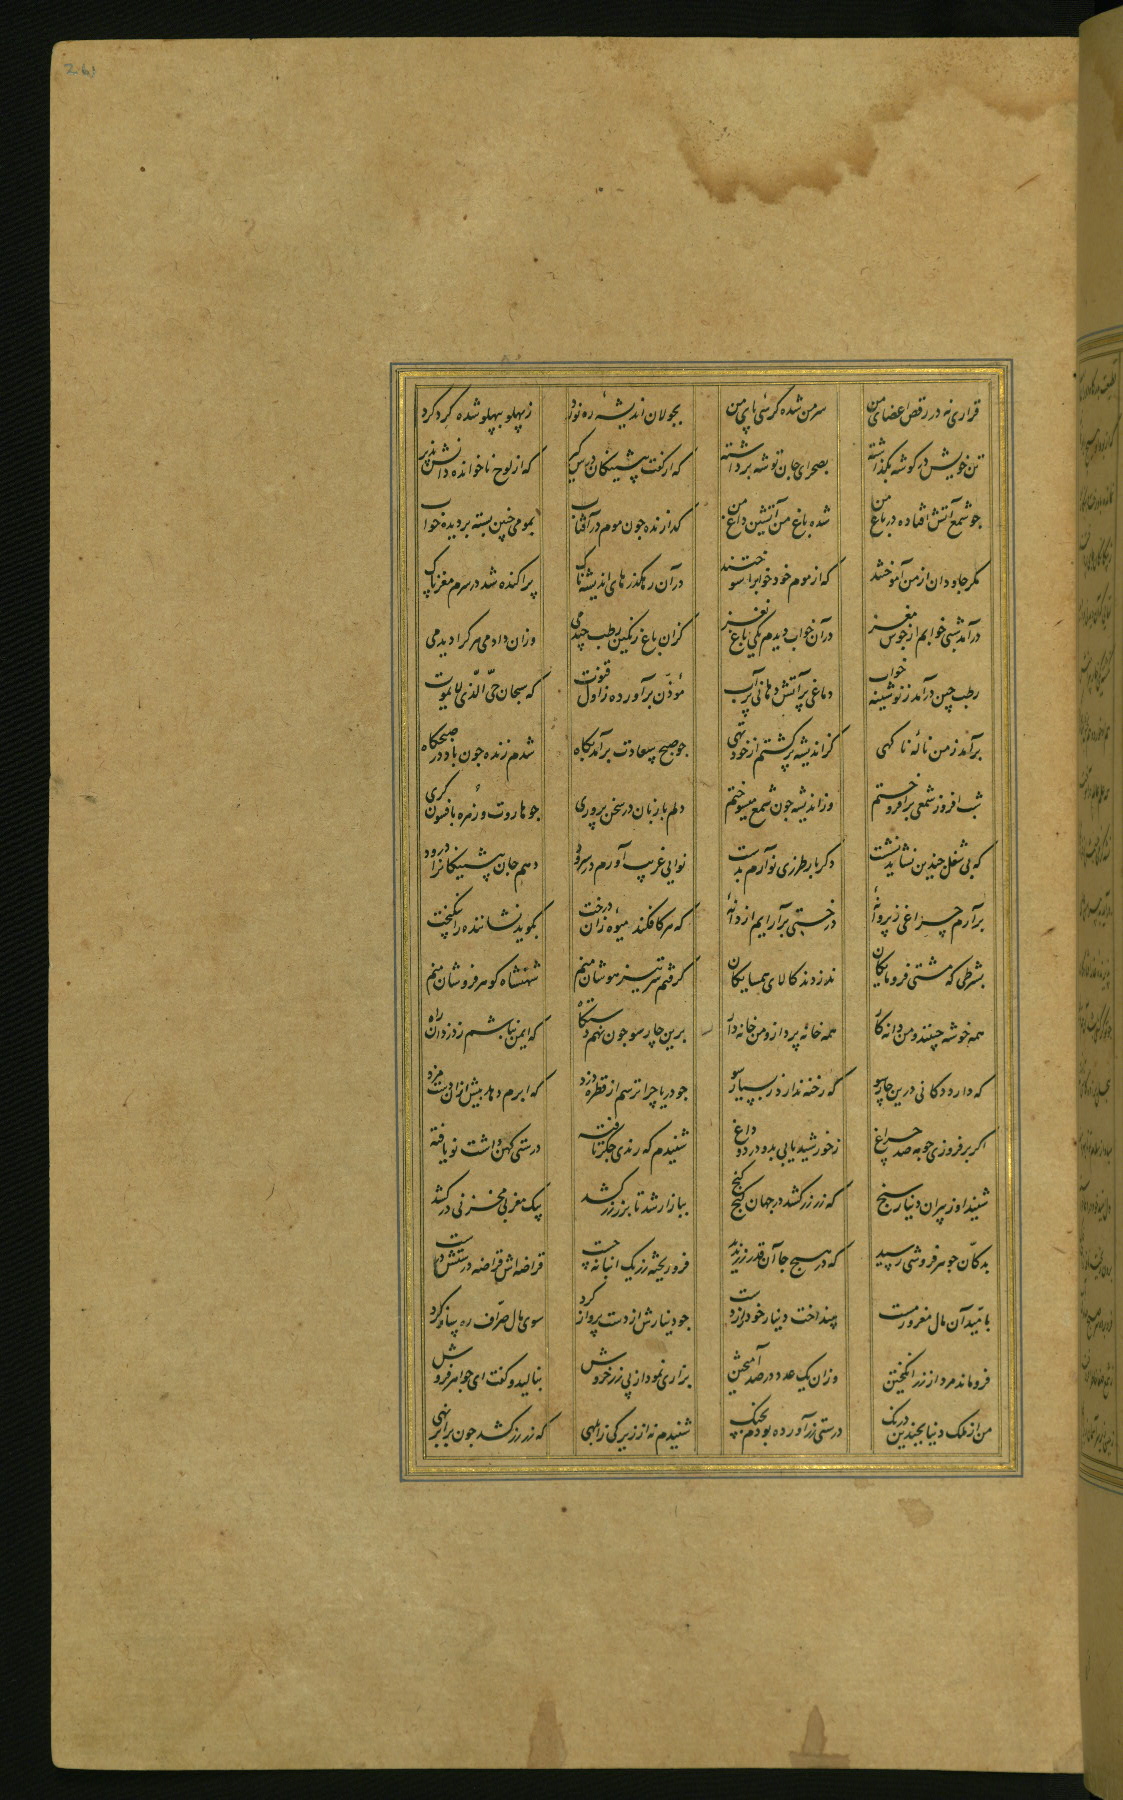 261
قراری نه در رقص اعضای من سر من شده کرسی پای من بجولان اندیشه ره نورد ز پهلو بپهلو شده گرد گرد
تن خویش در گوشه بگذاشته بصحرای جان توشه برداشته که از گفت پیشینگان درس گیر که از لوح ناخوانده دانش پذیر
چو شمع آتش افتاده در باغ من شده باغ من آتشین داغ من گدازنده چون موم در آفتاب بمومی چنین بسته بر دیده خواب
مگر جادوان از من آموختند که از موم خود خوابرا سوختند در آن رهگذرهای اندیشه ناک پراکنده شد در سرم مغز پاک
درآمد شبی خوابم از جوش مغز در آن خواب دیدم یکی باغ نغز کزان باغ رنگین رطب چیدمی وزان دادمی هر کرا دیدمی
رطب چین درآمد ز نوشینه خواب دماغی پر آتش دهانی پر آب مؤذّن برآورده ز اول قنوت که سبحان حیّ الّذی لا یموت
برآمد ز من نالهٔ ناگهی کز اندیشه پر گشتم از خود تهی چو صبح سعادت برآمد پگاه شدم زنده چون باد در صبحگاه
شب افروز شمعی برافروختم وز اندیشه چون شمع میسوختم دلم با زبان در سخن پروری چو هاروت و زهره بافسون گری
که بی شغل چندین نشاید نشست دگر باره طرزی نو آرم بدست نوایی غریب آورم در سرود دهم جان پیشینگانرا درود
برآرم چراغی ز پروانهٔ درختی برآرایم از دانهٔ که هر کافکند میوه زان درخت بگوید نشاننده را نیکبخت
بشرطی که مشتی فرومایگان ندزدند کالای همسایگان گرفتم سر تیزهوشان منم شهنشاه گوهر فروشان منم
همه خوشه چینند و من دانه کار همه خانه پرداز و من خانه دار برین چارسو چون نهم دستگاه که ایمن نباشم ز دزدان راه
که دارد دکانی درین چارسو که رخنه ندارد ز بسیار سو چو دریا چرا ترسم از قطره دزد که ابرم دهد بیش ازان دست مزد
اگر برفروزی چو مه صد چراغ ز خورشید یابی بدو در دو داغ شنیدم که رندی جگر تافته درستی کهن داشت نو یافته
شنید او ز پیران دینار سنج که زر زر کشد در جهان گنج گنج ببازار شد تا بزر زر کشد بیک مغربی مخزنی درکشد
بدکّان جوهر فروشی رسید که در هیچ جا آن قدر زر ندید فرو ریخته زر یک انبانه چست قراضه اش قراضه درستش درست
بامّید آن مال مغرور مست بینداخت دینار خود را ز دست چو دینارش از دست پرواز کرد سوی مال صرّاف ره باز کرد
فروماند مرد از زر انگیختن وزان یک عدد در صد آمیختن بزاری نمود از پی زر خروش بنالید و گفت ای جواهر فروش
من از ملک دنیا بچندین درنگ درستی زر آورده بودم بچنگ شنیدم نه از زیرکی ز ابلهی که زر زر کشد چون برابر نهی